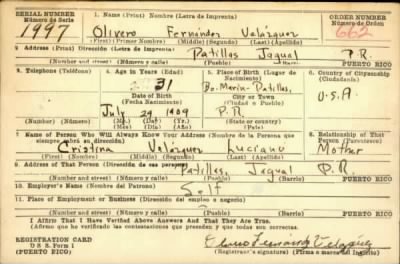 SERIAL NUMBER 1. NAME (Print) Nombre (Letra de Imprenta) ORDER NUMBER
Número de Serie Número de Orden
1997 Olivero Fernández Velázquez 662
(First) (Primer Nombre) (Middle) (Segundo) (Last) (Apellido)
2. ADDRESS (Print) Dirección (Letra de Imprenta) Patillas Jagual P.R.
(Number and street) (Número y calle) (Town) (Pueblo) Barrio PUERTO RICO
3. Telephone (Teléfono) 4. Age in Years (Edad) 5. Place of Birth (Lugar de Nacimiento) 6. Country of Citizenship (Ciudadanía)
31 Bo. Marín-Patillas,
Date of Birth (Fecha Nacimiento) City or Town (Ciudad o Pueblo) U.S.A
July 29 1909 P.R
(Mo.) (Mes) (Day) (Día) (Yr.) (Año) (State or country) (Estado o País)
7. Name of Person Who Will Always Know Your Address (Nombre de la Persona que siempre sabrá su dirección) 8. Relationship of That Person (Parentesco)
Cristina Velázquez Luciano Mother
(First) (Nombre) (Middle) (Segundo) (Last) (Apellido)
9. Address of That Person (Dirección de esa persona) Patillas, Jagual P.R
(Number and street) (Número y calle) (Town) (Pueblo) (Barrio) PUERTO RICO
10. Employer's Name (Nombre del Patrono) Self
11. Place of Employment or Business (Dirección del empleo o negocio)
(Number and street) (Número y calle) (Town) (Pueblo) (Barrio) PUERTO RICO
I Affirm That I Have Verified Above Answers And That They Are True.
Afirmo que he verificado las contestaciones que preceden y que todas son correctas.
REGISTRATION CARD
D S S. Form 1
(PUERTO RICO)
Olivero Fernandez Velázquez
(Registrant's signature) (Firma o marca del Inscrito)